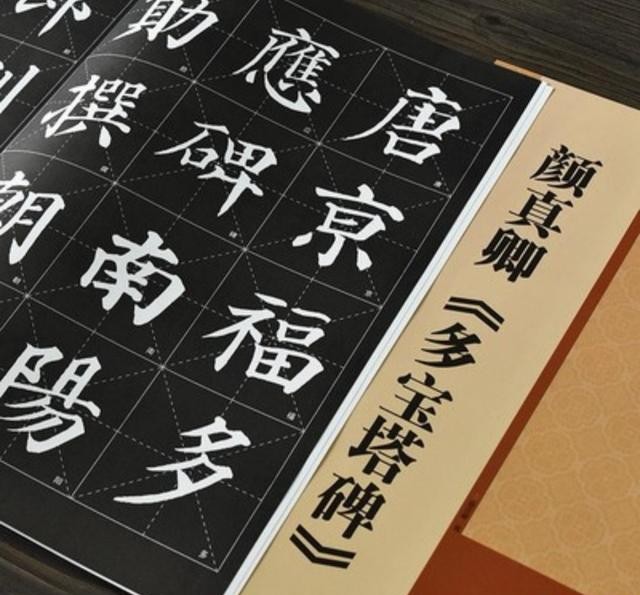 唐京福多
應碑南陽
勛撰朝
郎判
颜真卿《多宝塔碑》